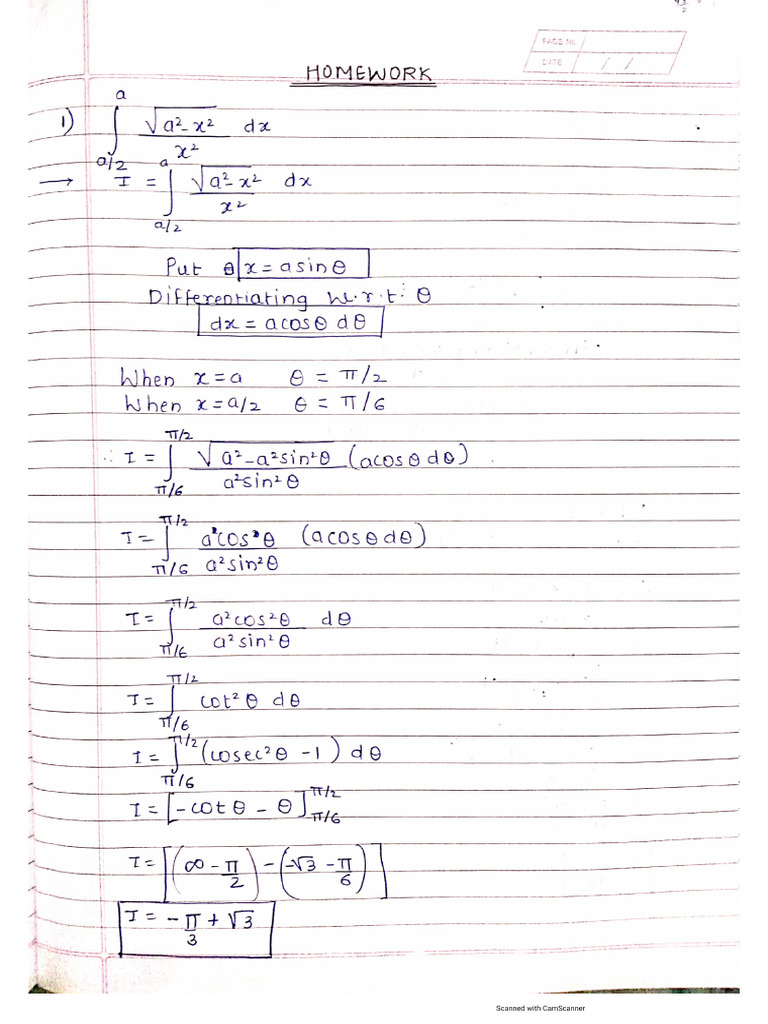 PAGE No.
DATE / /
HOMEWORK
1) ∫_{a/2}^{a} √(a²-x²) / x² dx
→ I = ∫_{a/2}^{a} √(a²-x²) / x² dx
Put x = a sinθ
Differentiating w.r.t. θ
dx = a cosθ dθ
When x = a θ = π/2
When x = a/2 θ = π/6
∴ I = ∫_{π/6}^{π/2} √(a²-a²sin²θ) / a²sin²θ (a cosθ dθ)
I = ∫_{π/6}^{π/2} a cosθ / a²sin²θ (a cosθ dθ)
I = ∫_{π/6}^{π/2} a²cos²θ / a²sin²θ dθ
I = ∫_{π/6}^{π/2} cot²θ dθ
I = ∫_{π/6}^{π/2} (cosec²θ - 1) dθ
I = [-cotθ - θ]_{π/6}^{π/2}
I = [(∞ - π/2) - (-√3 - π/6)]
I = -π/3 + √3
Scanned with CamScanner